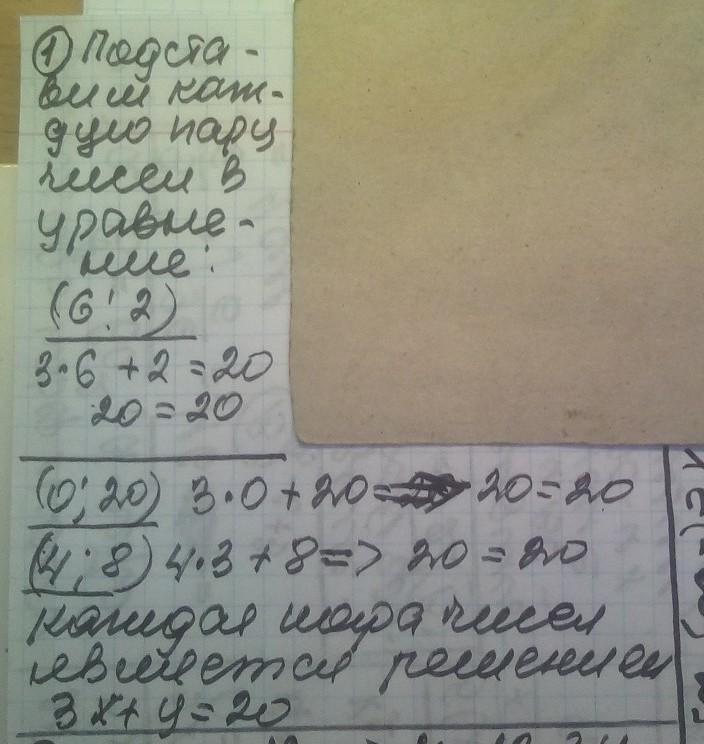 ① Подста-
вим каж-
дую пару
чисел в
уравне-
ние:
(6; 2)
3·6 + 2 = 20
20 = 20
(0; 20) 3·0 + 20 = 20 = 20
(4; 8) 4·3 + 8 => 20 = 20
каждая пара чисел
является решением
3x + y = 20